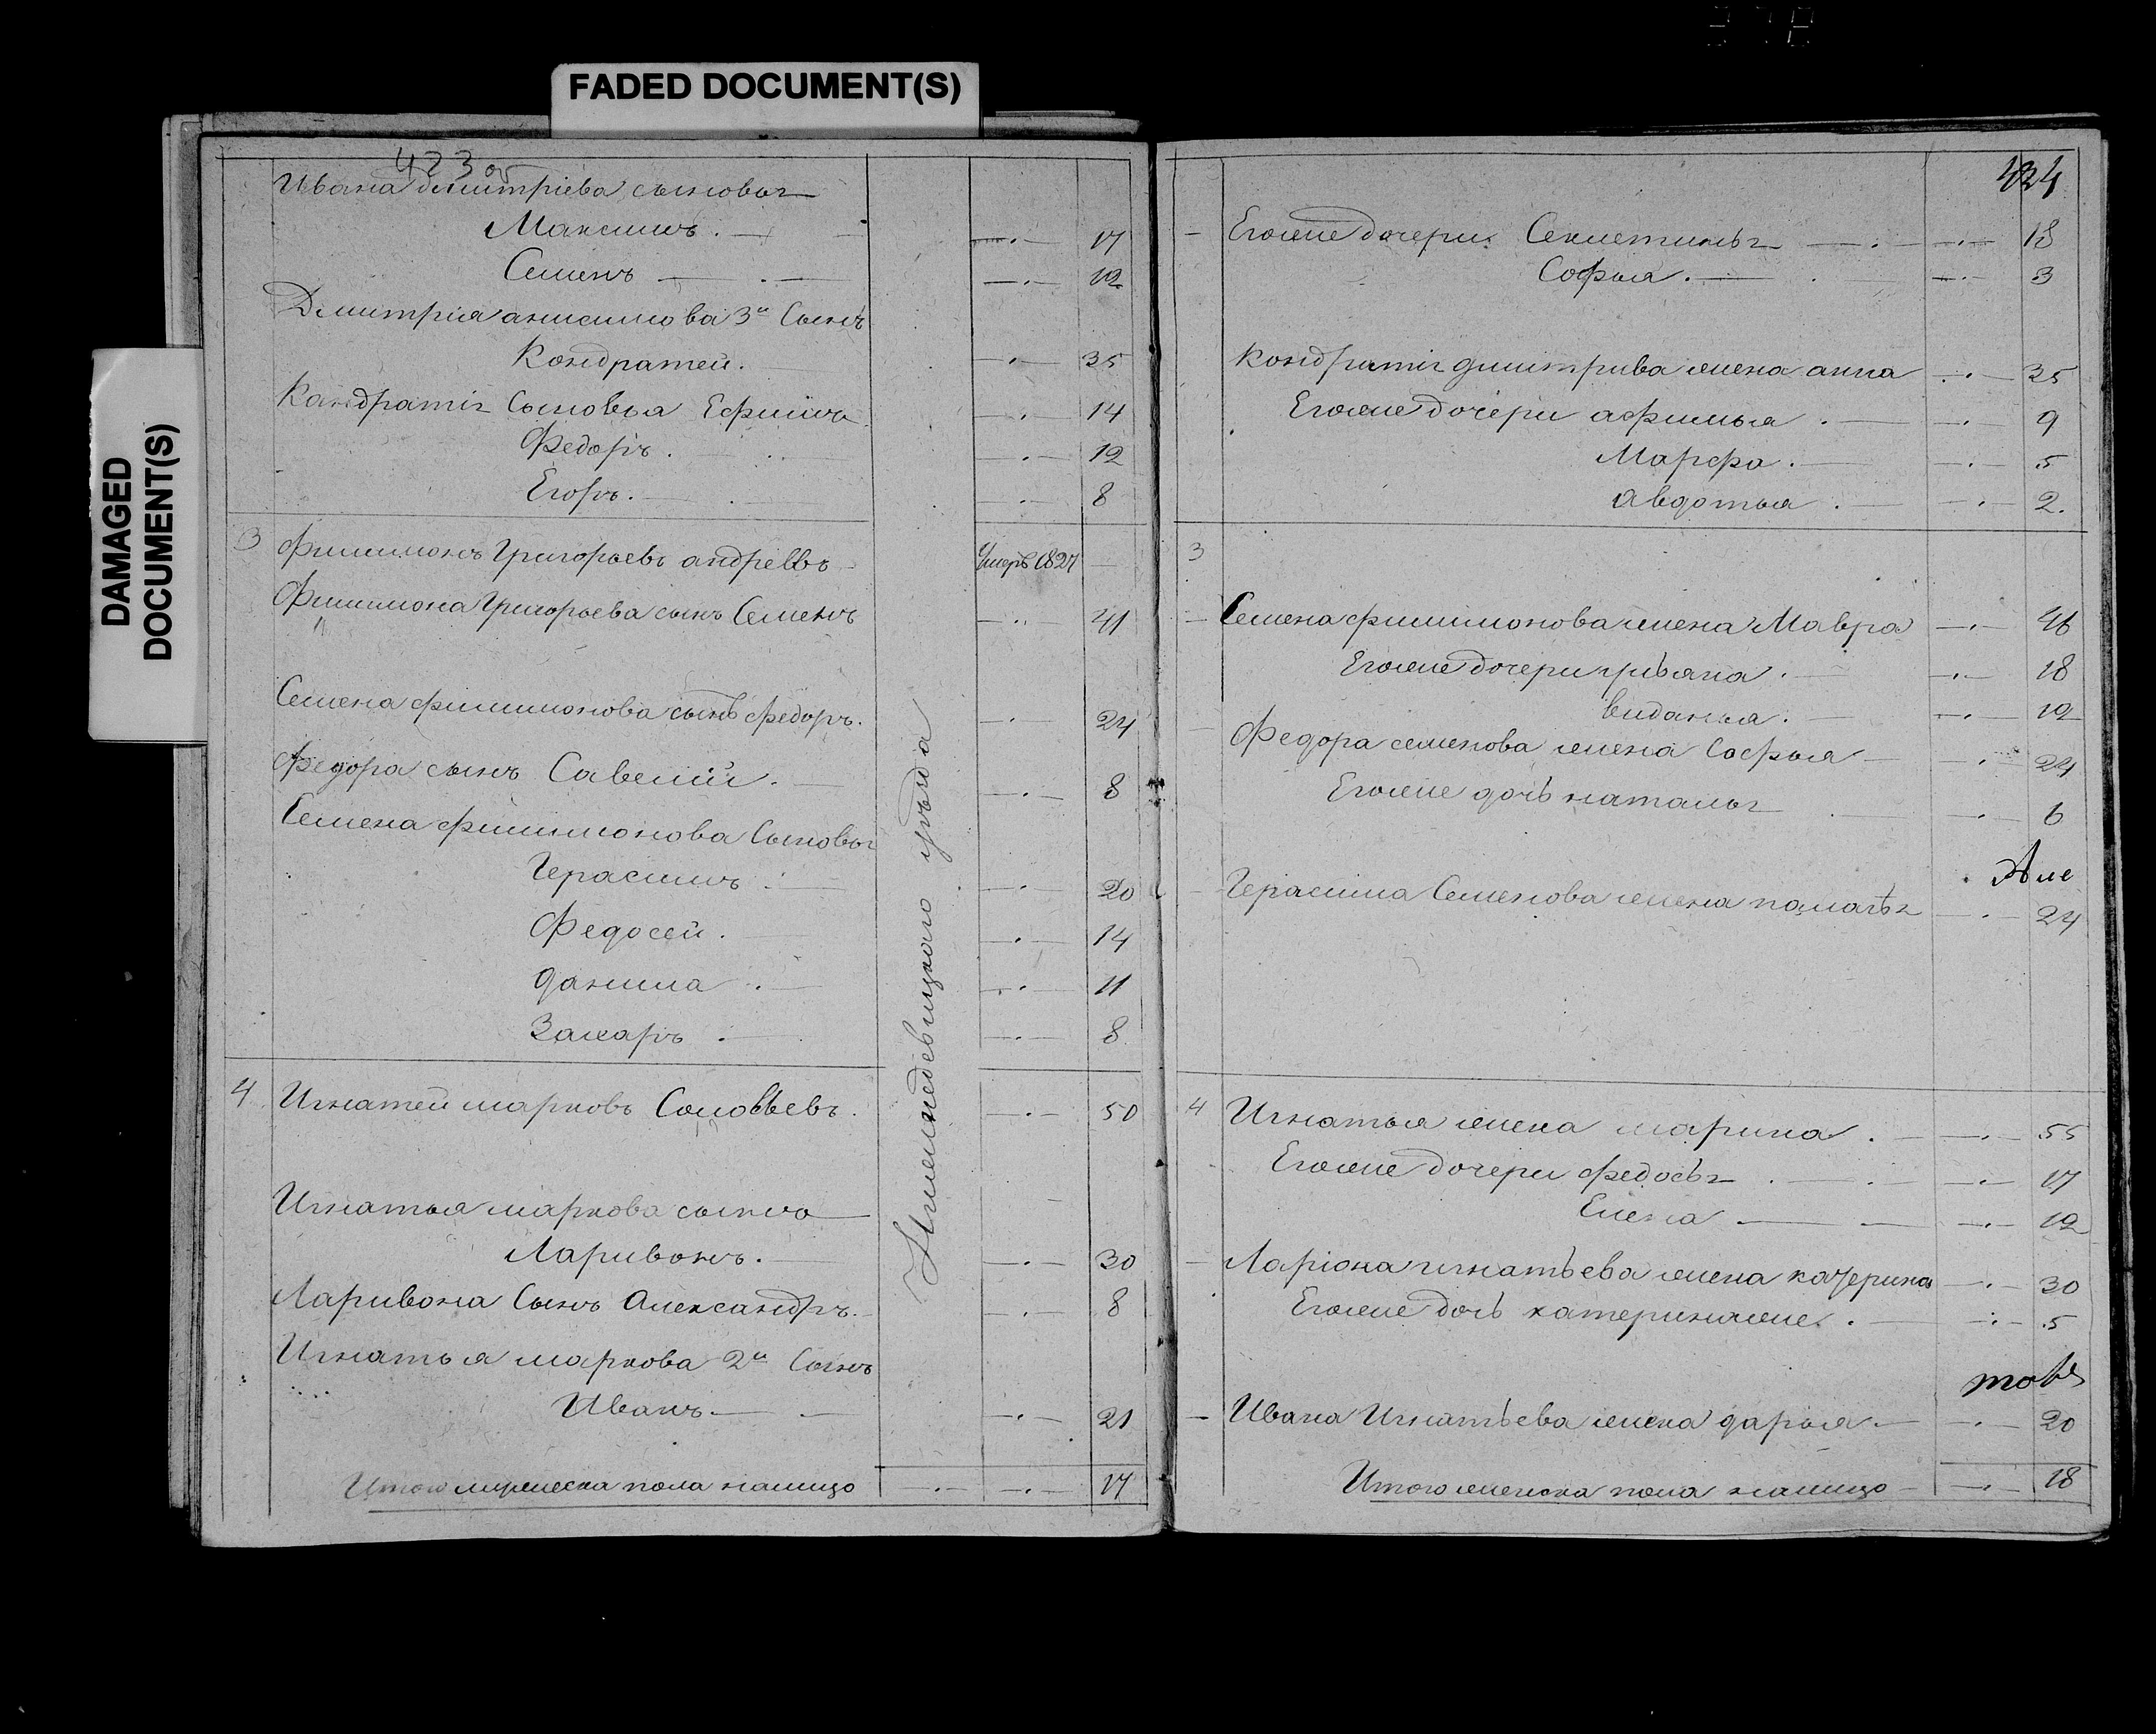 FADED DOCUMENT(S)
DAMAGED
DOCUMENT(S)
423 об
Ивана дмитріева сыновья
Максимъ. 17
Семенъ 12
Дмитрия анисимова 3й Сынъ
Кондратей. 35
Кандратія Сыновья Ефимъ 14
Федоръ. 12
Егоръ. 8
3 Филимонъ Григорьевъ андреевъ Умеръ 1827
Филимона Григорьева сынъ Семенъ 41
Семена филимонова сынъ федоръ. 24
Федора сынъ Савелий. 8
Семена филимонова Сыновья
Герасимъ 20
Федосей. 14
данила 11
Захаръ 8
4 Игнатей марковъ Соловьевъ. 50
Игнатья маркова сынъ
Ларивонъ. 30
Ларивона Сынъ Александръ. 8
Игнатья маркова 2й Сынъ
Иванъ 21
Итого мужеска пола налицо 17
Нижнедевицкого уезда
424
Егоже дочери Секлетинья 13
Софья. 3
Кондратія дмитрива жена анна 35
Егоже дочери афимья 9
Марфа. 5
авдотья 2.
3
Семена филимонова жена Мавра 46
Егоже дочери ульяна. 18
виданья. 12
Федора семенова жена Софья 24
Егоже дочь наталья 6
Герасима Семенова жена палагѣя 24
4 Игнатья жена марина. 55
Егоже дочери федосья 17
Елена 12
Ларіона игнатьева жена катерина 30
Егоже дочь катеринаже. 5
Ивана Игнатьева жена дарья 20
Итого женска пола налицо 18